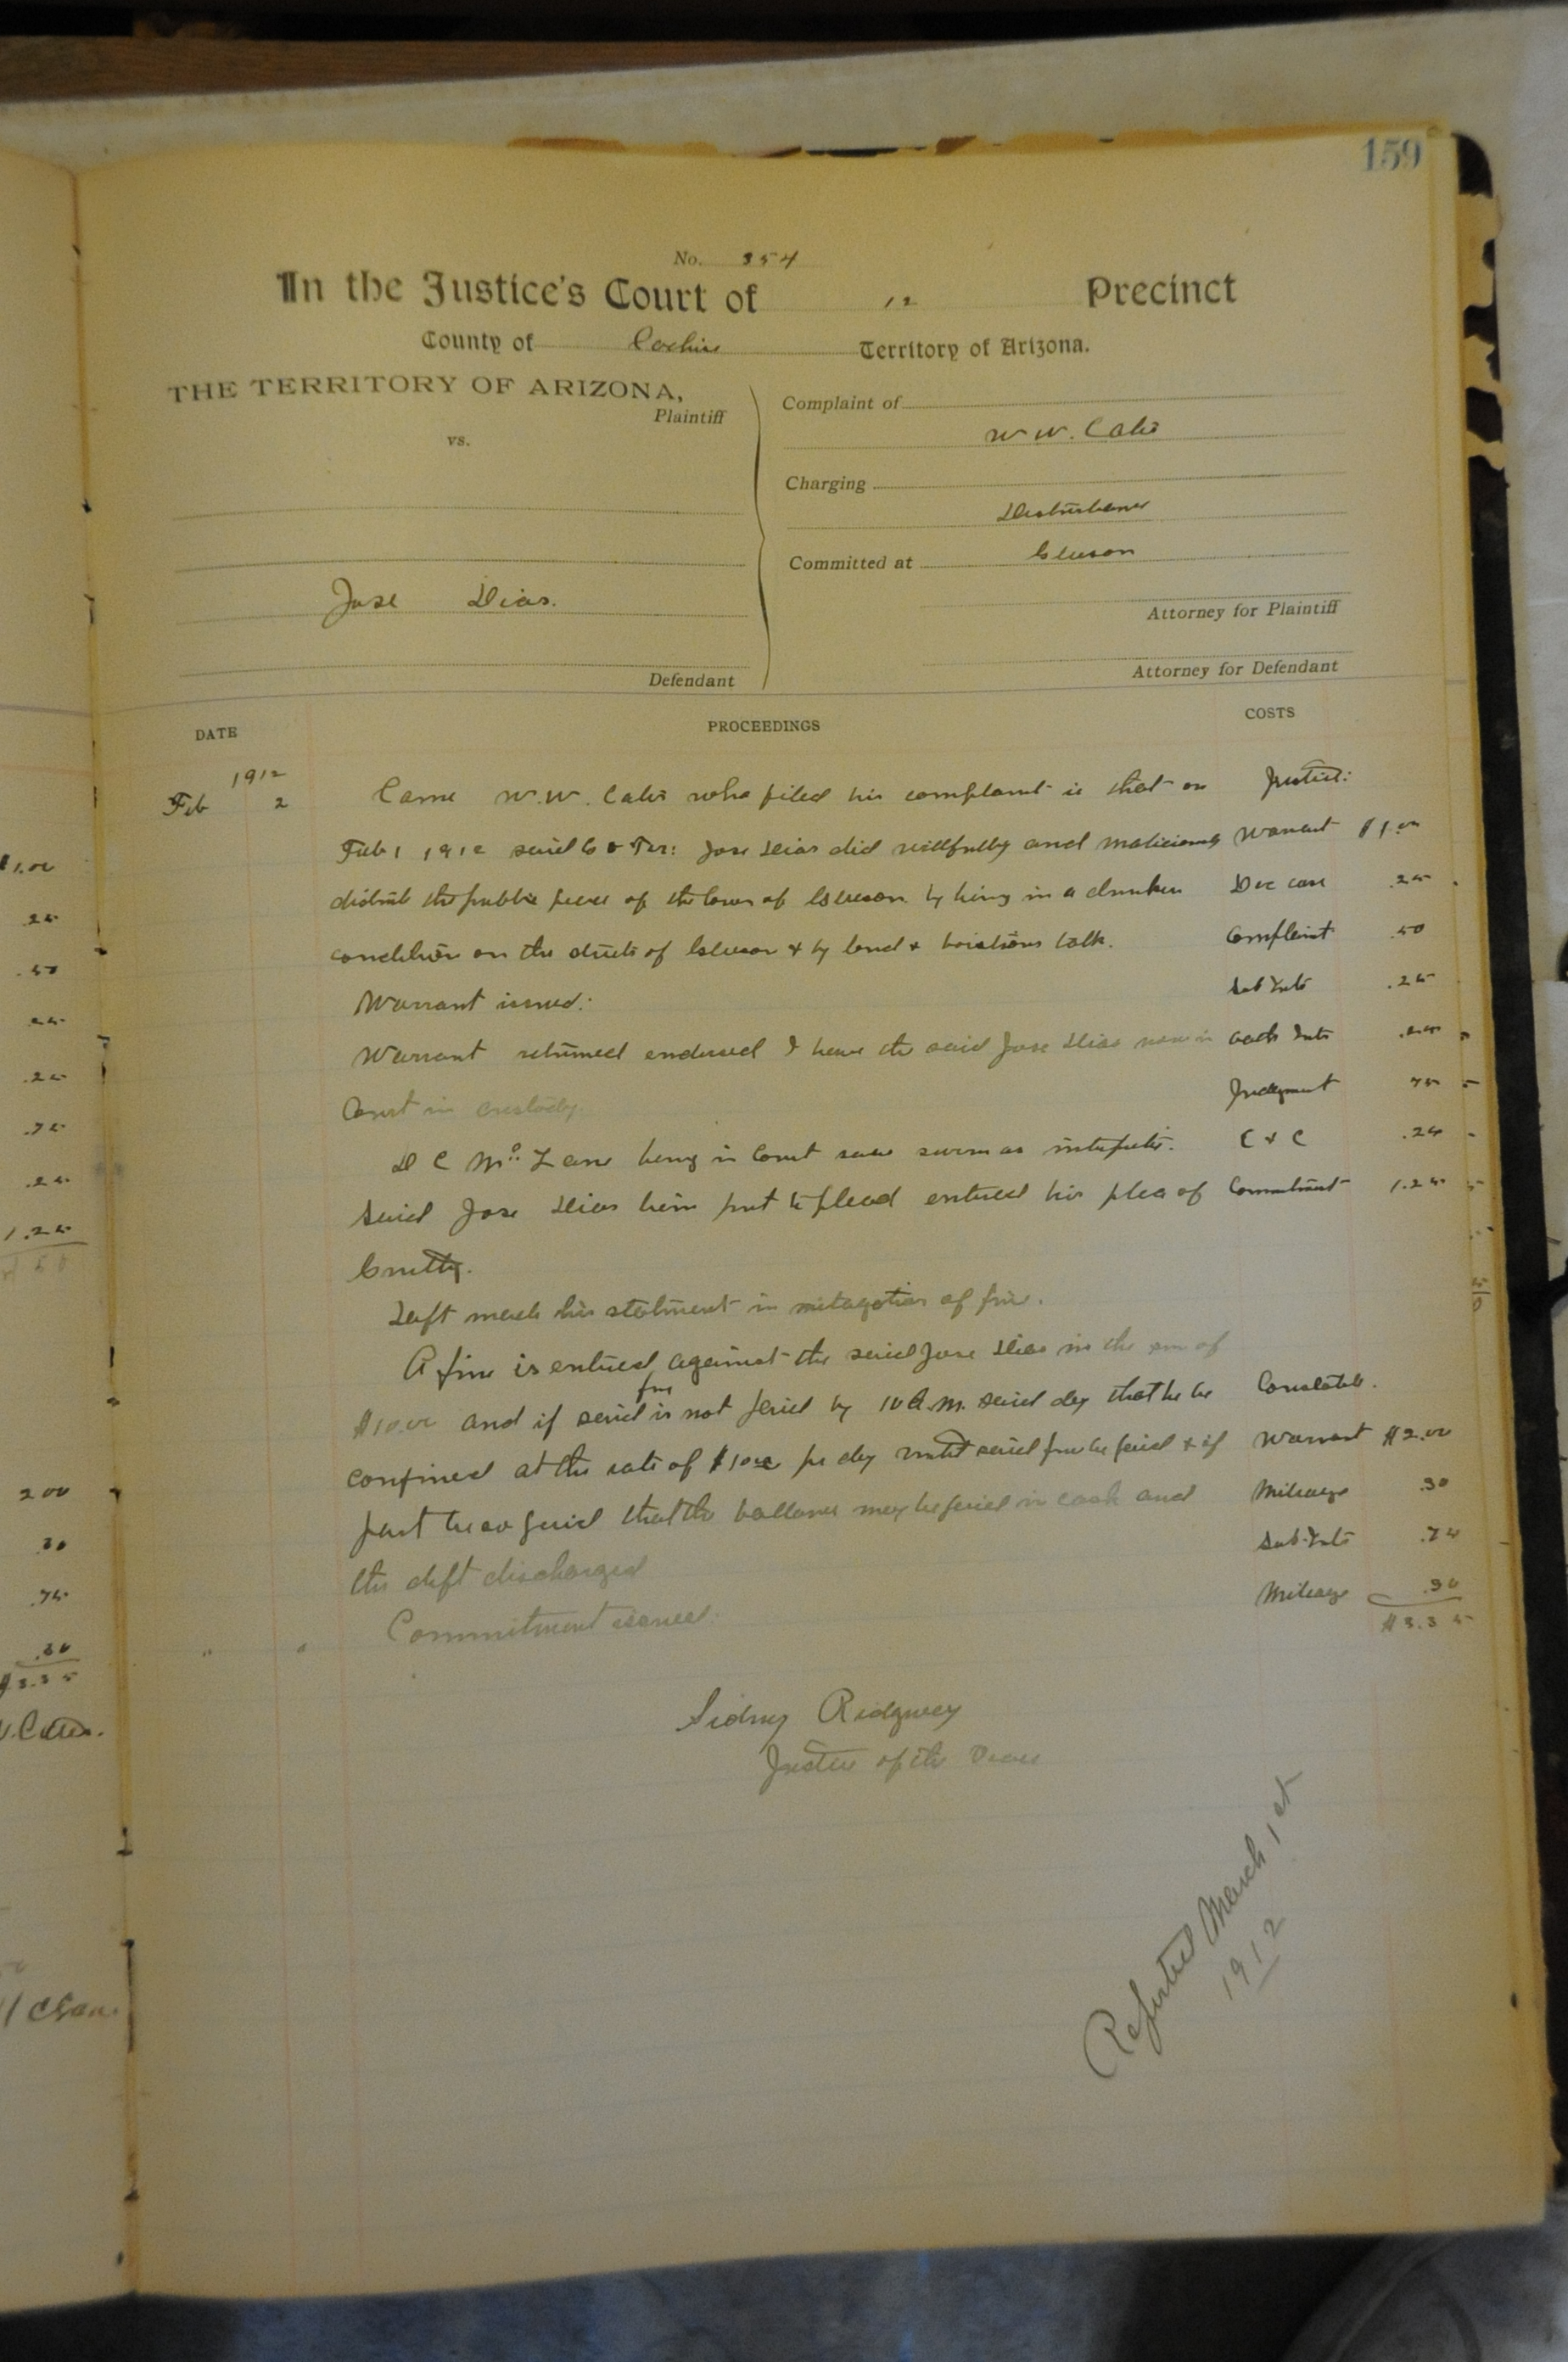 159
No. 354
In the Justice's Court of 12 Precinct
County of Cochise Territory of Arizona.
THE TERRITORY OF ARIZONA,
Plaintiff
vs.
Jose Dias.
Defendant
Complaint of
W. W. Cates
Charging
Disturbance
Committed at Gleeson
Attorney for Plaintiff
Attorney for Defendant
DATE PROCEEDINGS COSTS
1912
Feb 2 Came W. W. Cates who filed his complaint that on Justice:
Feb 1 1912 said Co & Ter: Jose Dias did willfully and maliciously Warrant $1.00
disturb the public peace of the town of Gleeson by being in a drunken Doc case .25
condition on the streets of Gleeson & by loud & boistious talk. Complaint .50
Warrant issued: .25
Warrant returned endorsed I have the said Jose Dias now in oath Int .25
Court in custody. Judgment 75
D C Mc Lane being in Court was sworn as interpeter. C & C .25
Said Jose Dias bein put to plead entered his plea of Commitment 1.25
Guilty.
Deft made his statment in mitagation of fine.
A fine is entered against the said Jose Dias in the sum of
fine
$10.00 and if said is not paid by 10 A.M. said day that he be Constable.
confined at the rate of $1.00 per day until said fine be paid & if Warrant $2.00
part be so paid that the ballance may be paid in cash and Mileage .30
the deft discharged Sub Int .75
Mileage .30
Commitment issued.
$3.35
Sidney Ridgway
Justice of the Peace
Reported March 1st
1912
$1.00
.25
.50
.25
.25
.75
.25
1.25
2 00
.30
.75
.30
$3.35